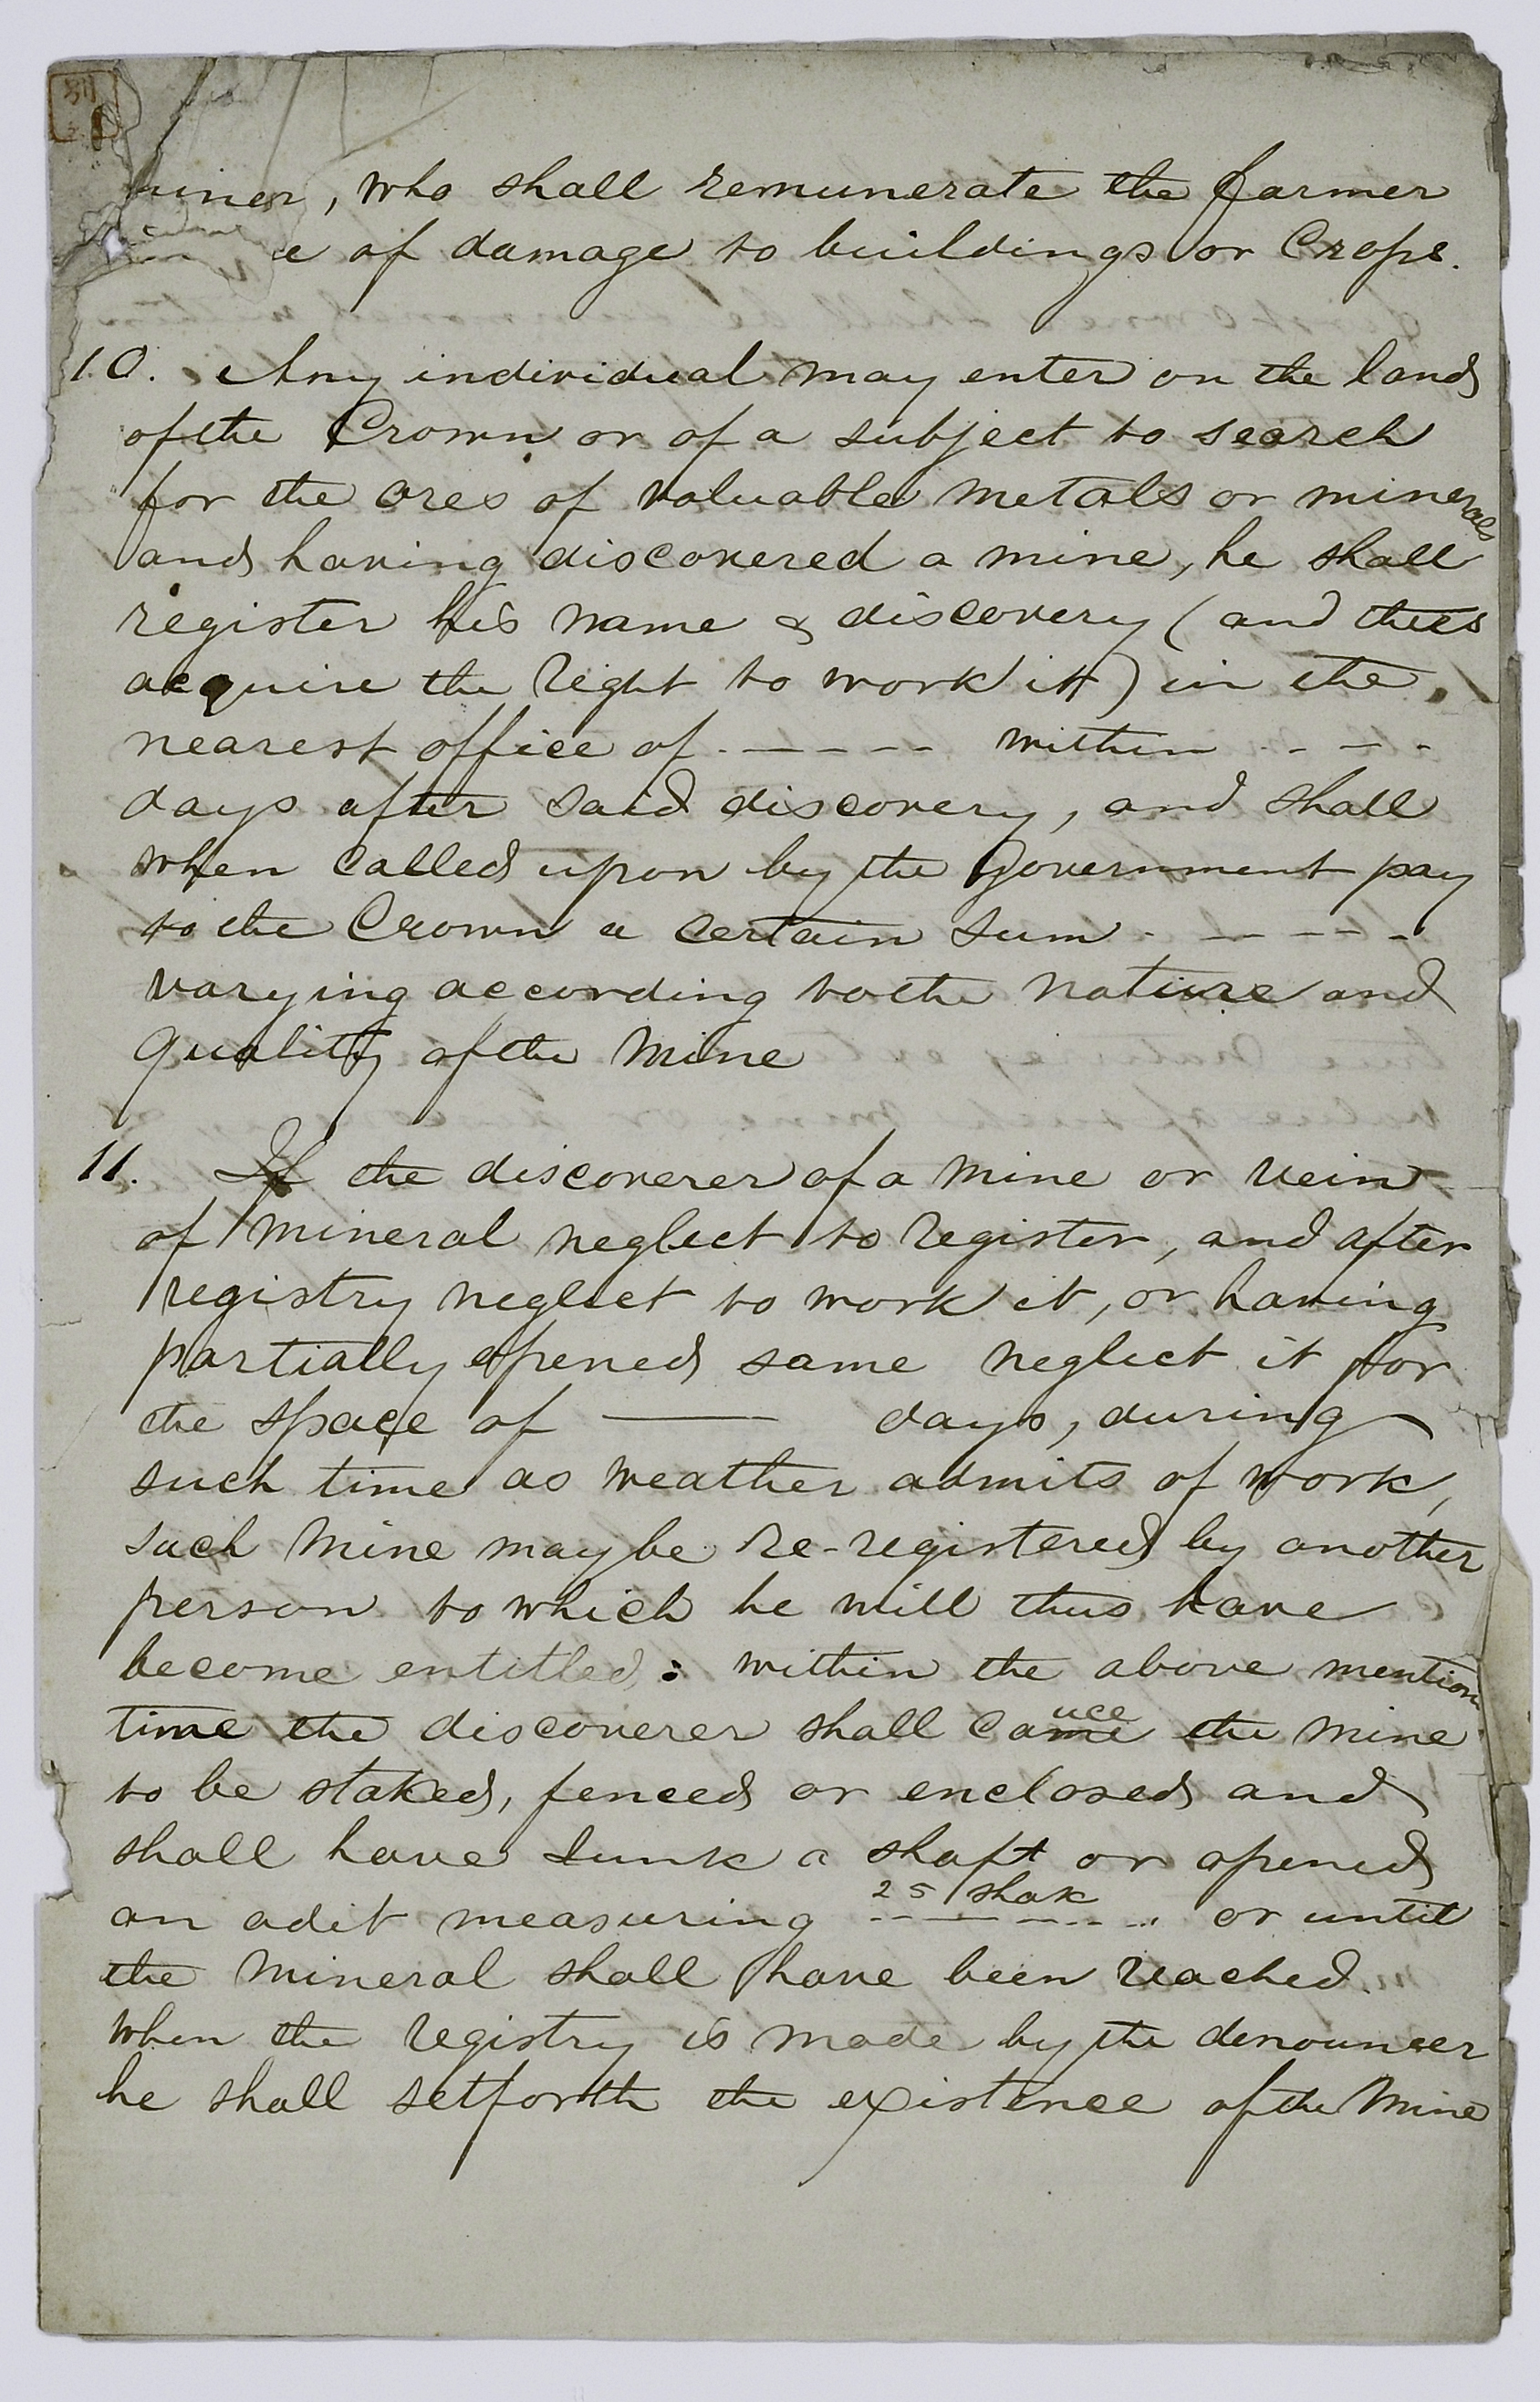 miner, who shall remunerate the farmer
of damage to buildings or Crops.
10. Any individual may enter on the lands
of the Crown or of a subject to search
for the ores of valuable metals or minerals
and having discovered a mine, he shall
register his name & discovery (and thus
acquire the right to work it) in the
nearest office of - - - - - within - - - -
days after said discovery, and shall
when called upon by the Government pay
to the Crown a certain sum - - - - - -
varying according to the nature and
quality of the Mine
11. If the discoverer of a mine or vein
of mineral neglect to register, and after
registry neglect to work it, or having
partially opened same neglect it for
the space of —— days, during
such time as weather admits of work,
such Mine may be re-registered by another
person to which he will thus have
become entitled: within the above mention
time the discoverer shall the mine
to be staked, fenced or enclosed and
shall have sunk a shaft or opened
25 shak
an adit measuring - - - - - - or until
the Mineral shall have been reached.
When the registry is made by the denouncer
he shall setforth the existence of the Mine